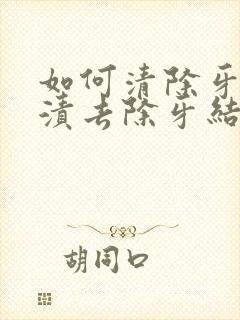 如何清除牙
渍去除牙结
胡同口